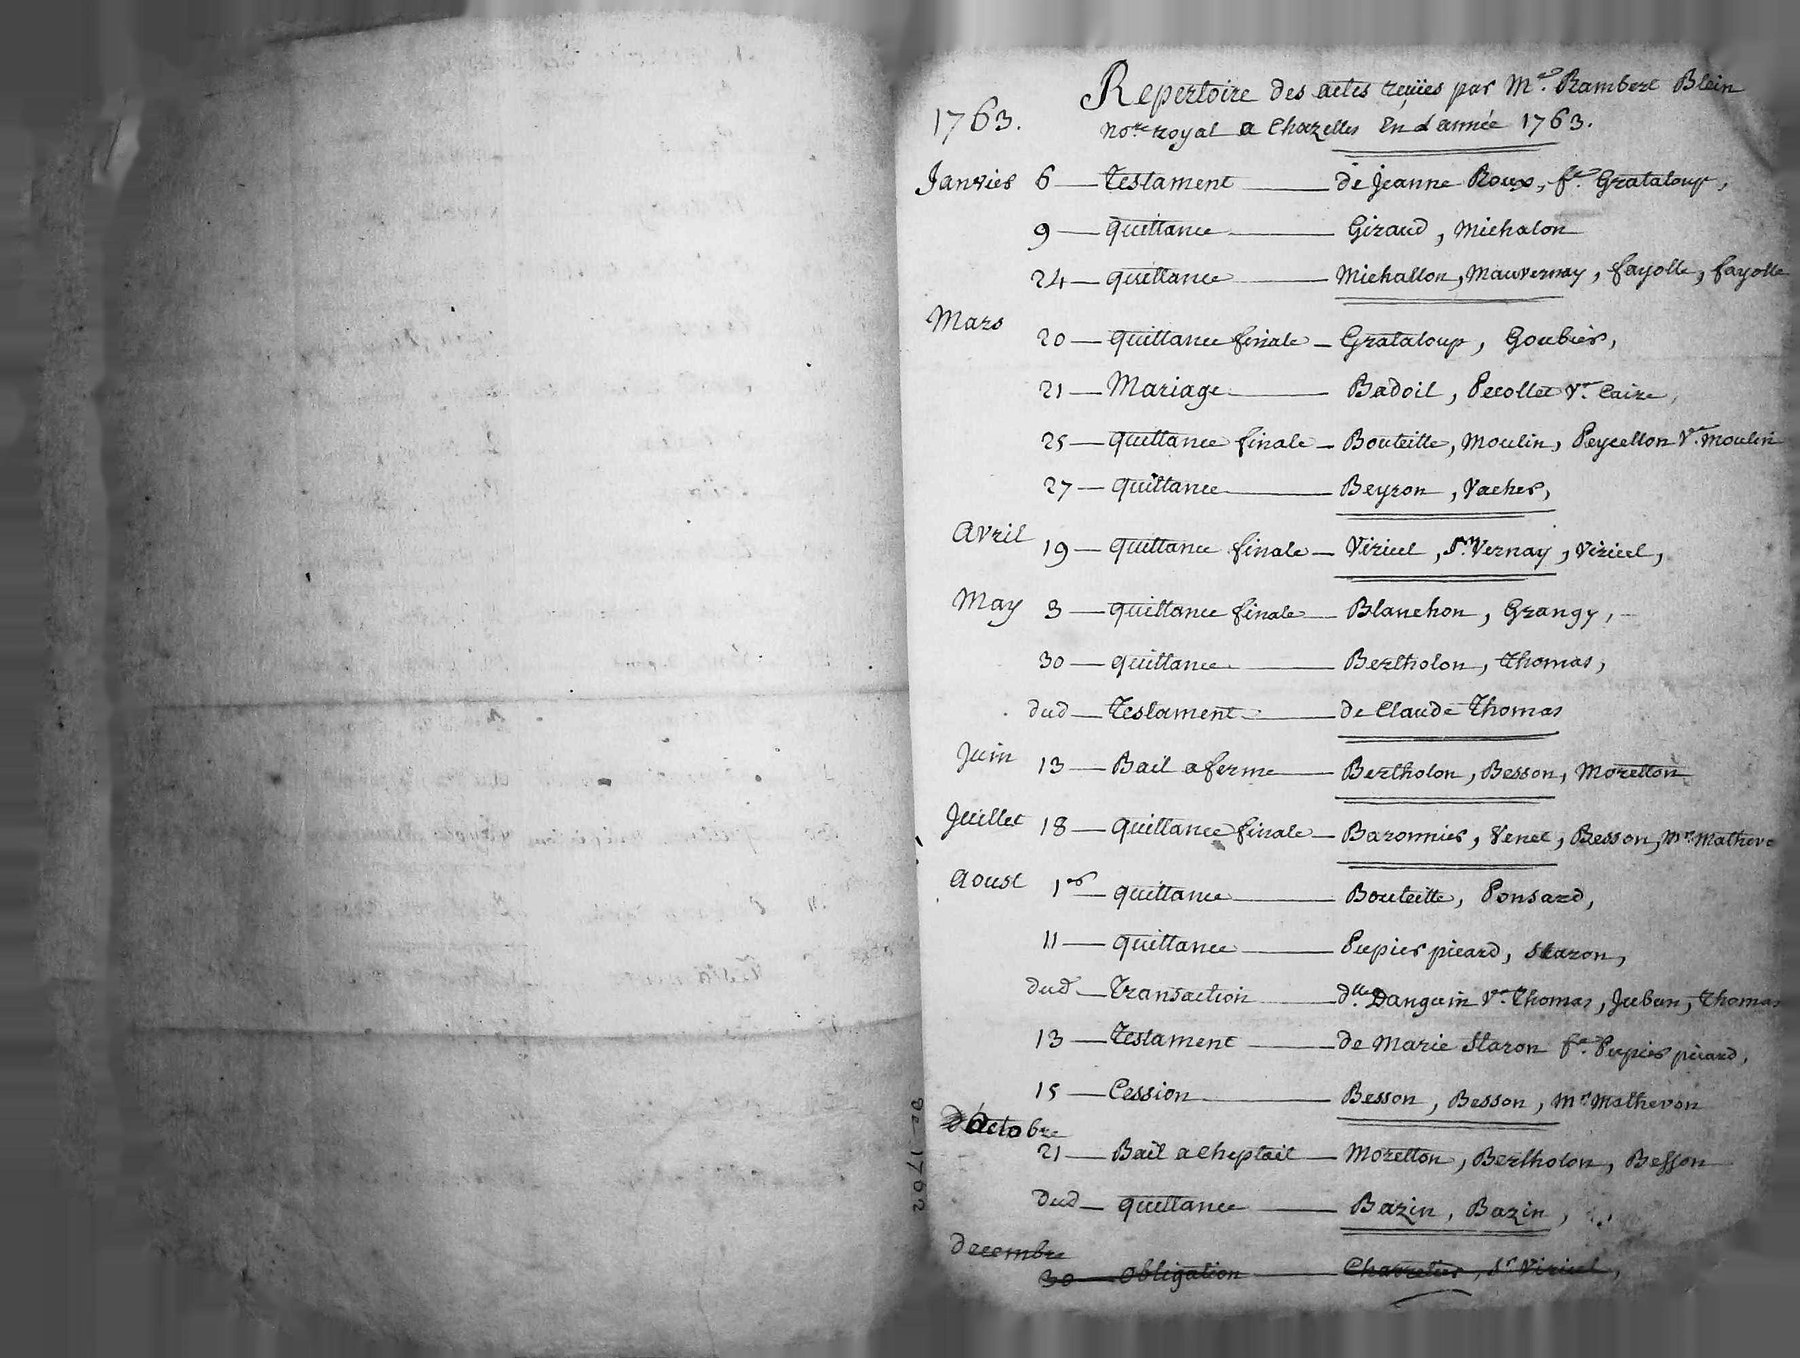 1763.
Repertoire des actes reçües par Me. Rambert Blein
nore. royal a Chazelles En Lannée 1763.
Janvier 6 — Testament — de Jeanne Roux, fe. Grataloup,
9 — quittance — Giraud, Michalon
24 — quittance — Michallon, Mauvernay, fayolle, fayolle
Mars
20 — quittance finale — Grataloup, Goubier,
21 — Mariage — Badoil, Pecollet Ve. Caire,
25 — quittance finale — Bouteille, Moulin, Peycellon Ve. Moulin
27 — quittance — Beyron, Vacher,
Avril 19 — quittance finale — Viricel, Sr. Vernay, Viricel,
May 3 — quittance finale — Blanchon, Grangy,
30 — quittance — Bertholon, Thomas,
dud — Testament — de Claude Thomas
Juin 13 — Bail a ferme — Bertholon, Besson, Moretton
Juillet 18 — quittance finale — Baronnier, Venet, Besson, Mr.
Aoust 1er — quittance — Bouteille, Ponsard,
11 — quittance — Pupier picard, Staron,
dud — Transaction — dlle. Danguin Ve. Thomas, Juban, Thomas
13 — Testament — de Marie Staron fe. Pupier picard,
15 — Cession — Besson, Besson, Mr Mathevon
Octobre
21 — Bail a Cheptail — Moretton, Bertholon, Besson
Dud — quittance — Bazin, Bazin,
decembre
30 — obligation — Chavetier, Sr Viricel,